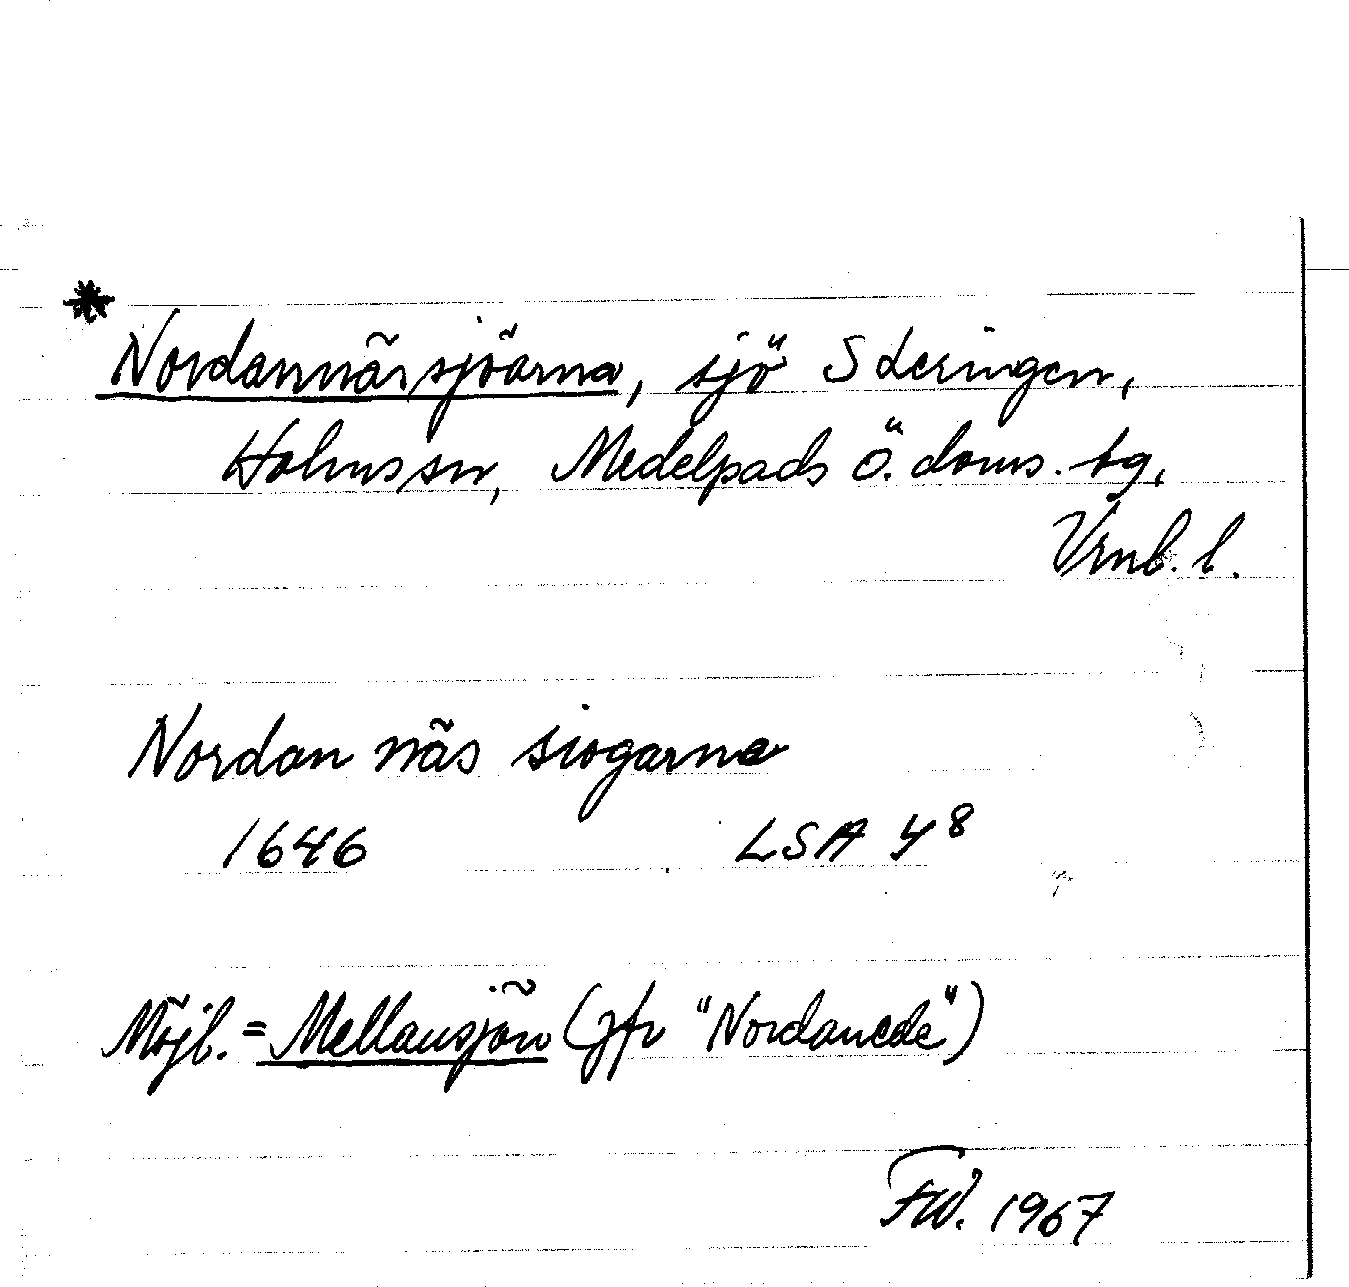 * Nordannäsisjöarna, sjö S Leringen,
Holms sn, Medelpads Ö. doms. tg,
Vrnl. l.
Nordan näs siogarna
1646 LSA Y 8
Möjl. = Mellansjön (jfr "Nordanede")
FW. 1967